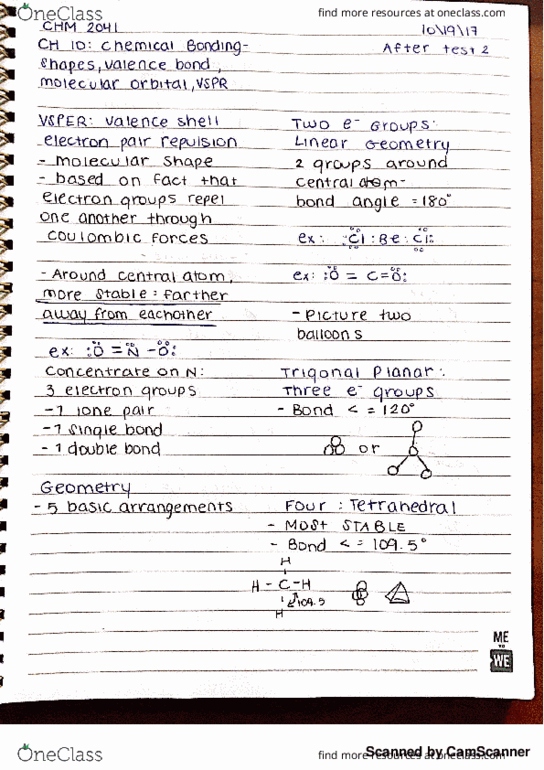 OneClass
find more resources at oneclass.com
CHM 2041
10\19\17
CH 10: Chemical Bonding-
After test 2
shapes, valence bond,
molecular orbital, VSPR
VSPER: valence shell
electron pair repulsion
- molecular shape
- based on fact that
electron groups repel
one another through
coulombic forces
- Around central atom,
more stable = farther
away from eachother
ex: :Ö = N̈ - Ö:
Concentrate on N:
3 electron groups
- 1 lone pair
- 1 single bond
- 1 double bond
Geometry
- 5 basic arrangements
Two e⁻ Groups:
Linear Geometry
2 groups around
central atom-
bond angle = 180°
ex: :Cl : Be : Cl:
ex: :Ö = C = Ö:
- Picture two
balloons
Trigonal Planar:
Three e⁻ groups
- Bond < = 120°
or
Four : Tetrahedral
- MOST STABLE
- Bond < = 109.5°
H
H - C - H
109.5
H
ME
TO
WE
OneClass
find more resources at oneclass.com
Scanned by CamScanner